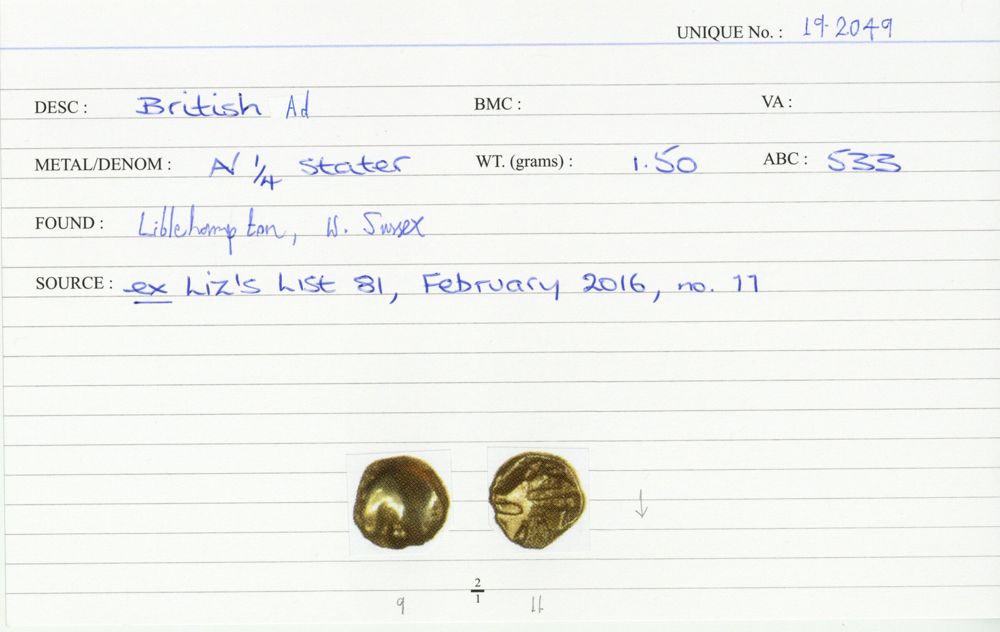 UNIQUE No. : 19-2049
DESC : British Ad BMC : VA :
METAL/DENOM : A/ 1/4 stater WT. (grams) : 1.50 ABC : 533
FOUND : Littlehampton, W. Sussex
SOURCE : ex Liz's List 81, February 2016, no. 11
2/1
9 11